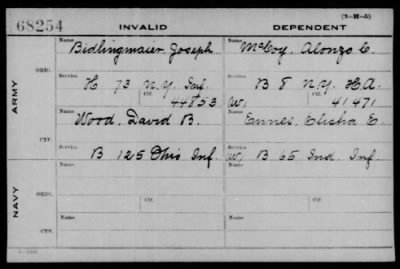 (3-H-5)
68254 INVALID DEPENDENT
Name Bidlingmaier, Joseph Name McCoy, Alonzo C.
ARMY ORIG. Service H 73 N.Y. Inf. Service B 8 N.Y. H.A.
Ctf. 44853 (W) Ctf. 41471
Name Wood, David B. Name Ennes, Elisha E.
CTF. Service B 125 Ohio Inf. (W) Service B 65 Ind. Inf.
NAVY Name Name
ORIG. Service Service
Name Name
CTF. Service Service